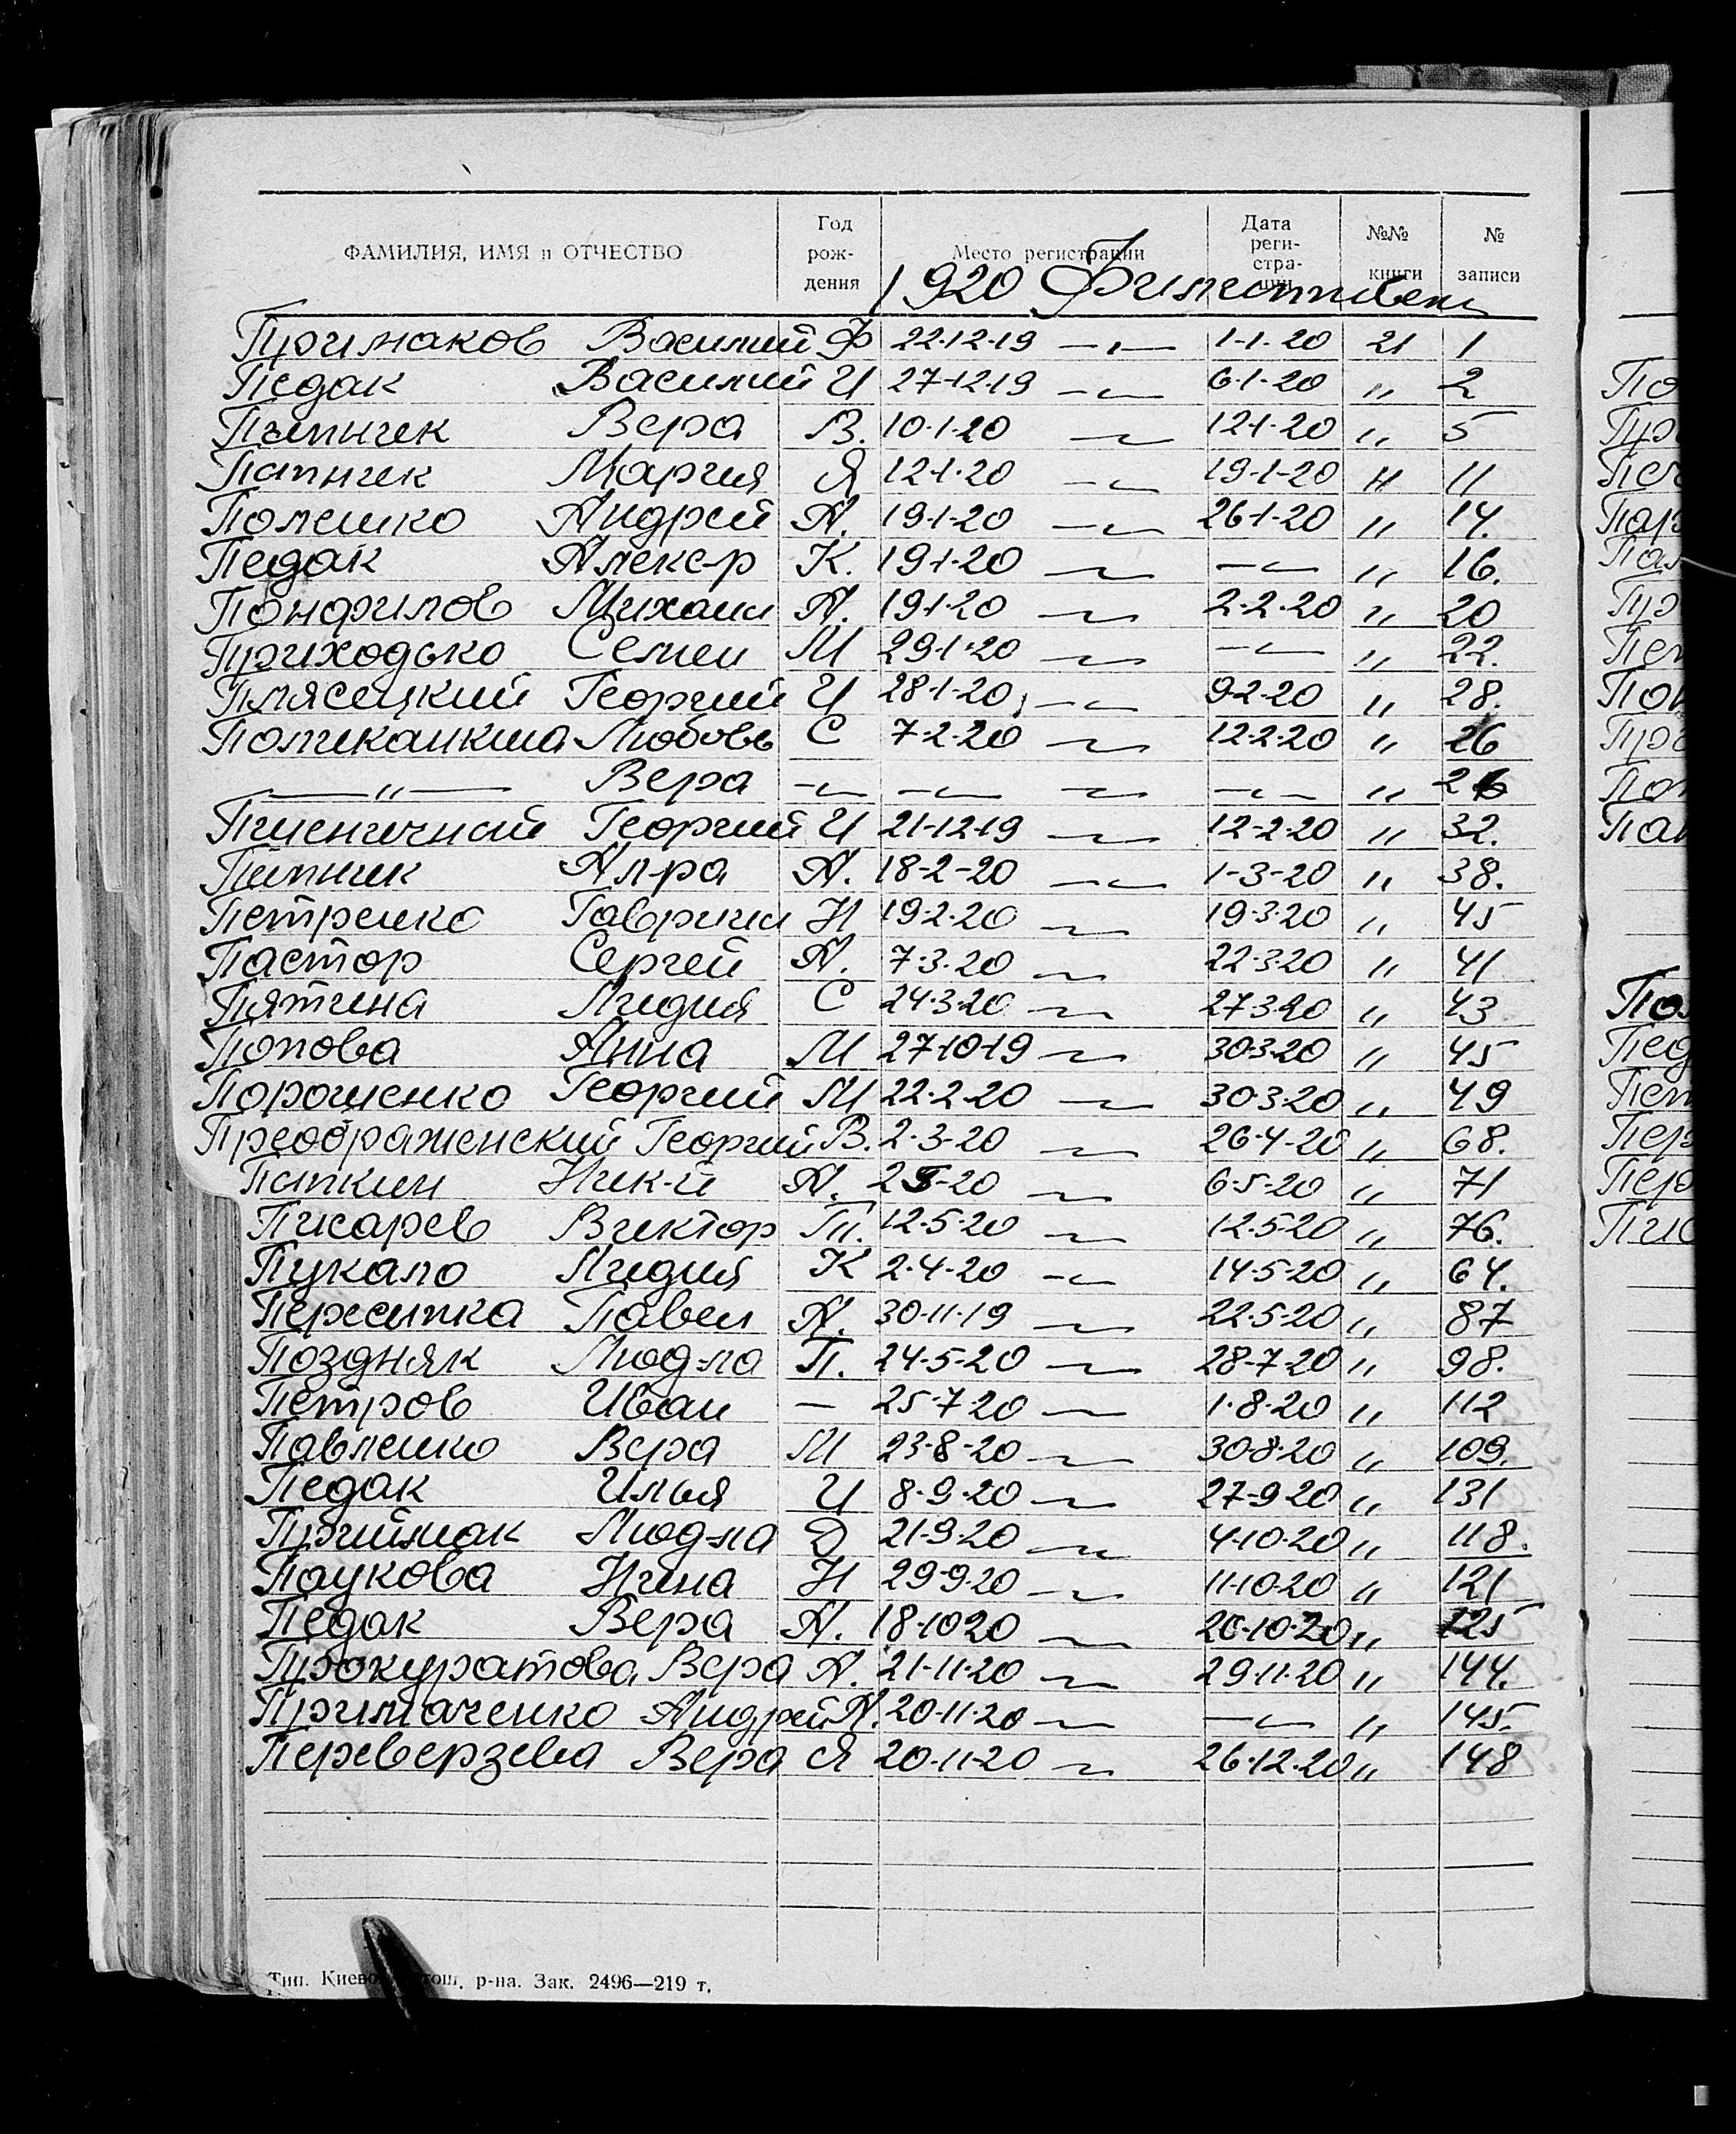 ФАМИЛИЯ, ИМЯ и ОТЧЕСТВО Год рождения Место регистрации Дата регистрации №№ книги № записи
1920
Примаков Василий Ф 22·12·19 —〃— 1-1-20 21 1
Педак Василий И 27-12-19 —〃— 6-1-20 〃 2
Вера В. 10·1·20 — 12·1·20 〃 5
Папчек Мария Я 12·1·20 —〃— 19-1-20 〃 11
Полешко Андрей А. 19·1·20 —〃— 26·1·20 〃 14.
Педак Алекс-р К. 19·1·20 — —〃— 〃 16.
Понфилов Михаил А. 19·1·20 — 2·2·20 〃 20
Приходько Семен М 29·1·20 — —〃— 〃 22.
Плясецкий Георгий И 28·1·20 —〃— 9·2·20 〃 28.
Любовь С 7·2·20 — 12·2·20 〃 26
—〃— Вера —〃— —〃— — —〃— 〃 26
Пшеничный Георгий И 21-12-19 — 12-2-20 〃 32.
Ал-ра А. 18-2-20 —〃— 1-3-20 〃 38.
Петренко Гаврил Н 19·2·20 — 19·3·20 〃 45
Пастор Сергей А. 7·3·20 — 22·3·20 〃 41
Пятина Лидия С 24·3·20 — 27·3·20 〃 43
Попова Анна М 27·10·19 — 30·3·20 〃 45
Георгий М 22·2·20 — 30·3·20 〃 49
Преображенский Георгий В. 2-3-20 — 26·4·20 〃 68.
Папкин Ник-й А. — 6·5·20 〃 71
Писарев Виктор П. 12·5·20 — 12·5·20 〃 76.
Пукало Лидия К 2·4·20 — 14·5·20 〃 64.
Пересыпка Павел А. 30·11·19 — 22·5·20 〃 87
Поздняк Люд-ла П. 24·5·20 — 28·7·20 〃 98.
Петров Иван — 25·7·20 — 1·8·20 〃 112
Павленко Вера М 23·8·20 — 30·8·20 〃 109.
Педак Илья И 8·9·20 — 27·9·20 〃 131
Приймак Люд-ла Д 21·9·20 — 4·10·20 〃 118.
Паукова Нина Н 29·9·20 — 11·10·20 〃 121
Педак Вера А. 18·10·20 — 〃 125
Прокуратова Вера А. 21-11-20 — 29·11·20 〃 144.
Примаченко Андрей А. 20·11·20 — —〃— 〃 145.
Переверзева Вера Я 20·11·20 — 26·12·20 〃 148
Тип. р-на. Зак. 2496—219 т.